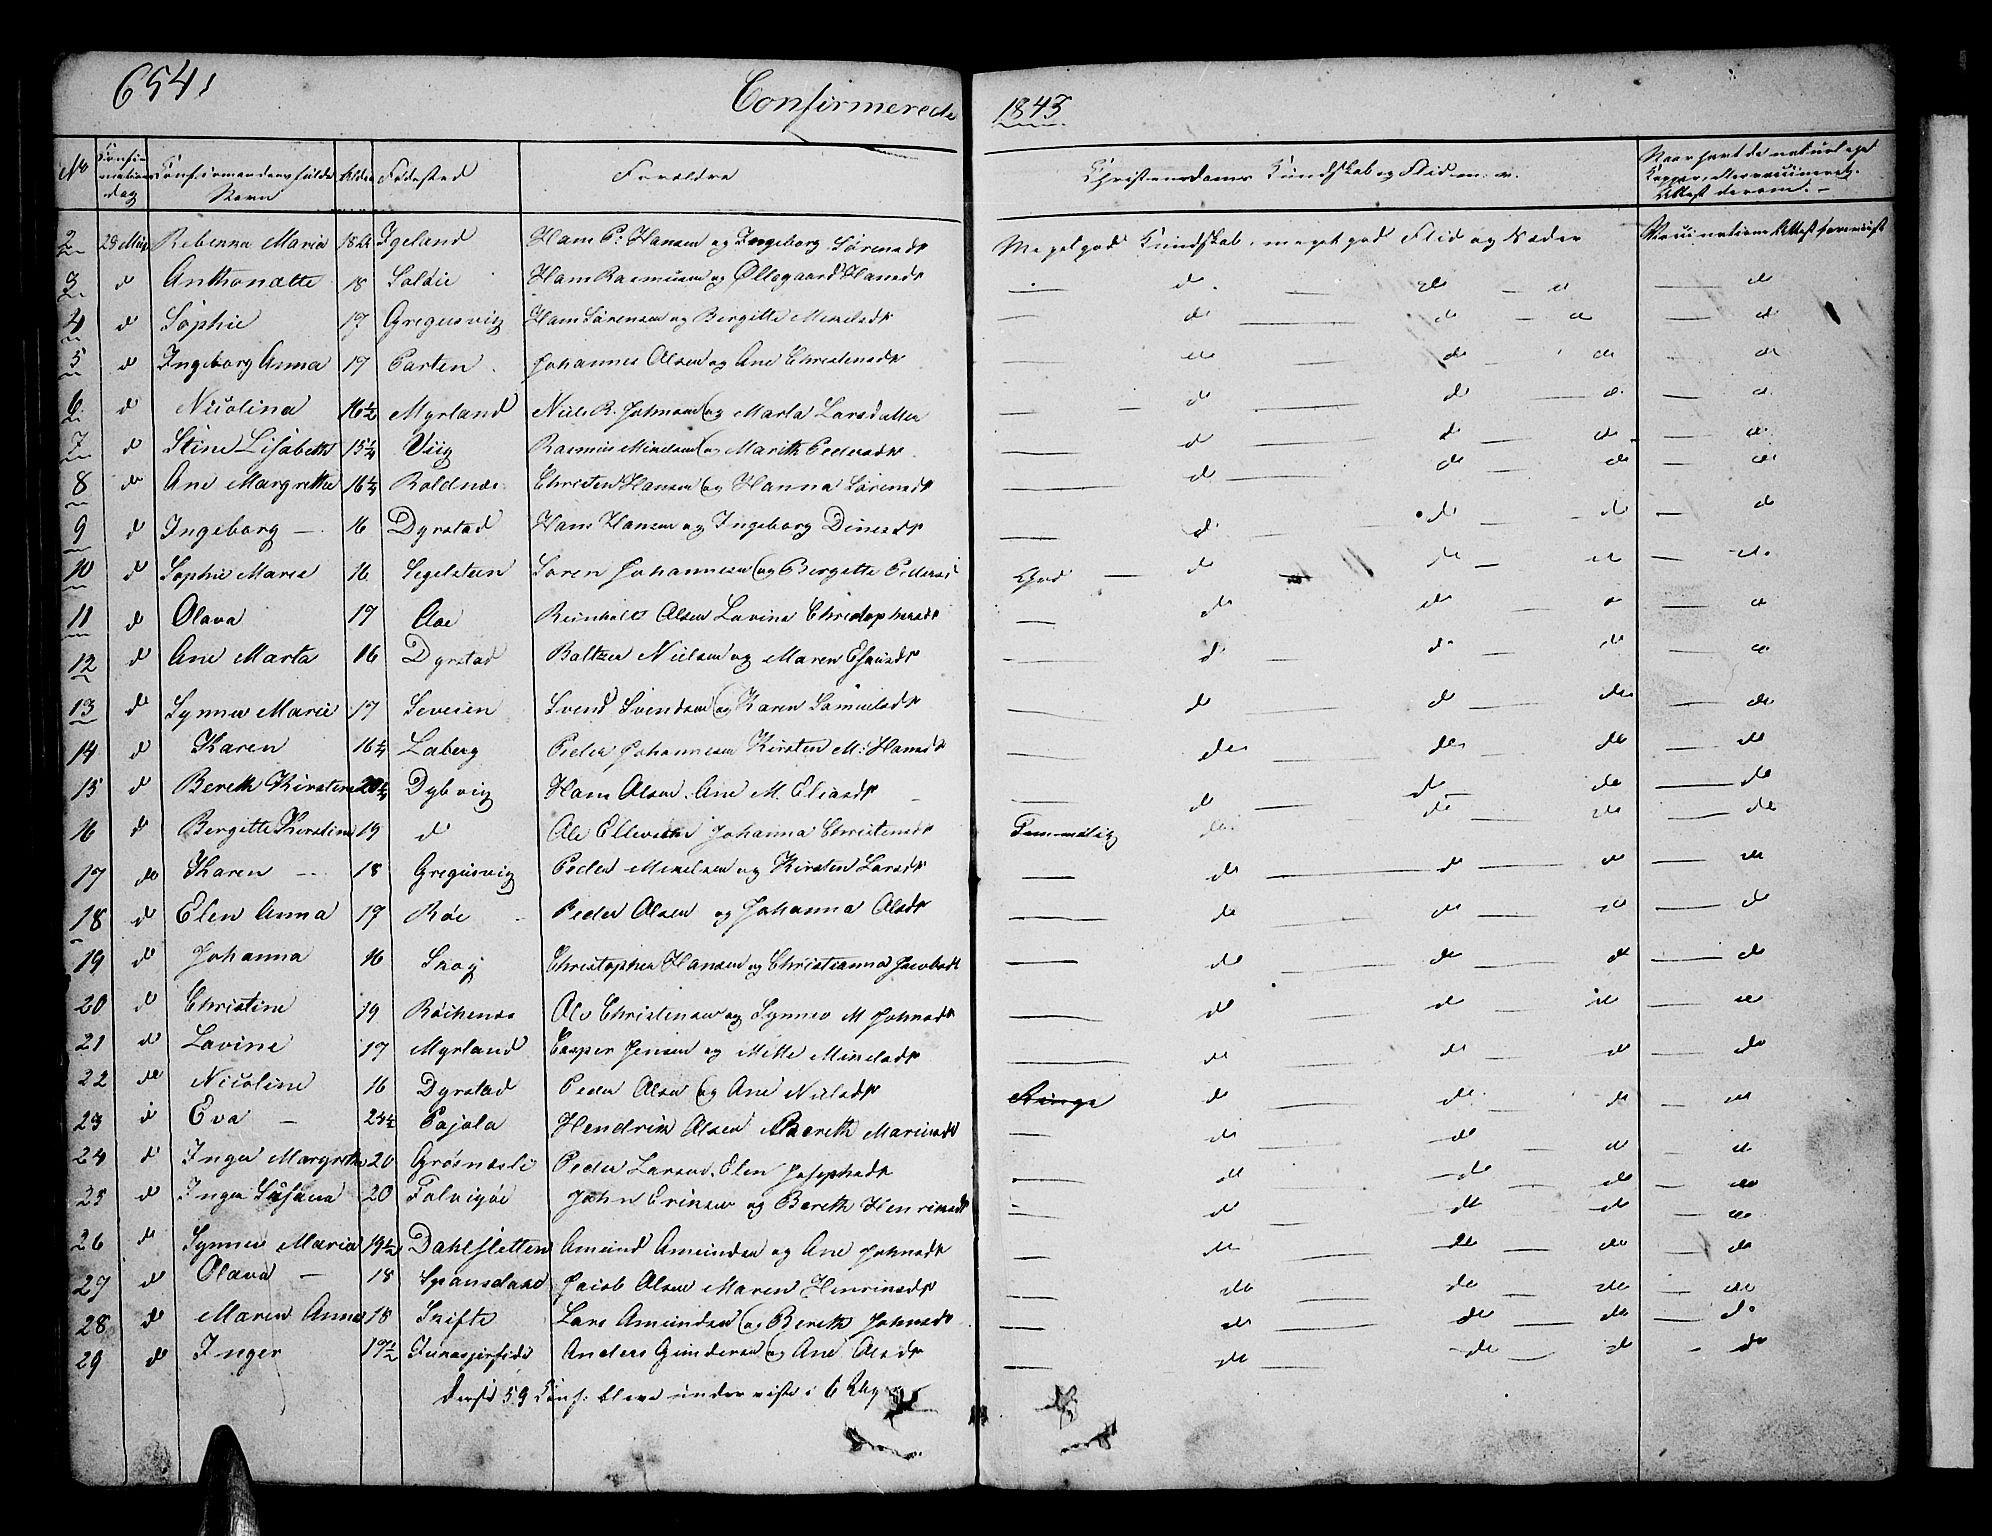 654
Confirmerede
1843
No Confirmations dag Confirmandens fulde Navn Alder Fødested Forældre Christendoms Kundskab og Flid m. v. Naar havt de naturlige Kopper, eller vaccineret, Attest derom.
2 29 Rebenna Maria 18 Igeland Hans P: Hansen og Ingeborg Sørensdt Meget god Kundskab, meget god Flid og Sæder Vaccinations Attest foreviist
3 d Anthonette 18 Soløie Hans Rasmusen og Øllegaard Hansdt — de de — d — de
4 d Sophie 17 Gregusvig Hans Sørensen og Bergitte Mikelsdt — de — de — de — de
5 d Ingeborg Anna 17 Carten Johannes Olsen og Ane Christensdt — de — de — de — de
6 d Nicolina 16½ Myrland Niels R. Johnsen og Marta Larsdatter — de — de — de — de
7 d Stine Lisabeth 15¼ Viig Rasmus Mikelsen og Marith Pedersdt — de — de — de — de
8 d Ane Margrethe 16¼ Roldnæs Christen Hansen og Hanna Sørensdt — de — de — de — de
9 d Ingeborg — 16 Dyrstad Hans Hansen og Ingeborg Dinesdt — d — de — de — de
10 d Sophie Maria 16 Segelsteen Soren Johannesen og Bergitte Pedersd God — de — de — de — de
11 d Olava 17 Aae Reinholt Olsen Lavina Christophersdt — de — de — d — d
12 d Ane Marta 16 Dyrstad Baltzer Nielsen og Maren Esaiasdt — d — de — de — de
13 d Synnev Marie 17 Seveien Svend Svendsen og Karen Samuelsdt — de — de — de — de
14 d Karen 16¼ Laberg Peder Johannesen Kirsten M: Hansdt — de — de — de — de
15 d Bereth Kirstine 20¼ Dybvig Hans Olsen, Ane M. Eliasdt — de — de — de — de
16 d Bergitte Kirstine 19 d Ole Ellevsen Johanna Christensdt Temmelig de — de — de — de
17 de Karen — 18 Gregusvig Peder Mikelsen og Kirsten Larsdt — de — de — de — de
18 d Elen Anna 17 Røe Peder Olsen og Johanna Olsdt — de — de — de — de
19 d Johanna 16 Skog Christopher Hansen og Christianna Jacobsdt — de — de — de — de
20 d Christine 19 Røikenæs Ole Christensen og Synnev M Johnsdt — de — de — de — de
21 d Lavine 17 Myrland Casper Jensen og Mette Mikelsdt — de — de — de — de
22 de Nicoline 16 Dyrstad Peder Olsen og Ane Nielsdt Ringe de — de — de — de
23 d Eva — 23½ Pajola Hendrik Olsen Bereth Marinsdt — de — de — de — de
24 d Inger Margrethe 20 Grøsnæsli Peder Larsen, Elen Josephsdt — de — de — de — de
25 d Inger Susana 20 Folvigøe John Eriksen og Bereth Henriksdt — de — de — de — de
26 d Synnev Maria 19½ Dahlsletten Amund Amundsen og Ane Johnsdt — de — de — de — de
27 d Olava — 18 Spansdalen Jacob Olsen Maren Henriksdt — de — de — de — de
28 de Maren Anna 18 Skifte Lars Amundsen og Bereth Johnsdt — de — de — de — de
29 d Inger 17½ Anders Gundersen og Ane Olsdt — de — de — de — de
Disse 59 Conf: bleve underviste i 6